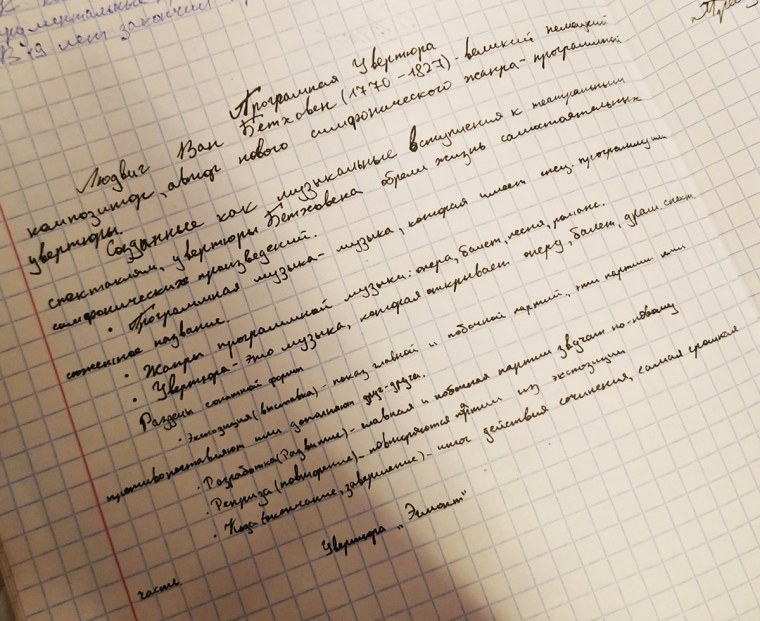 В 19 лет закончил
Програмная Увертюра
Людвиг Ван Бетховен (1770-1827)- великий немецкий
композитор, автор нового симфонического жанра- программной
увертюры.
Созданные как музыкальные вступления к театральным
спектаклям, увертюры Бетховена обрели жизнь самостоятельных
симфонических произведений.
• Программная музыка- музыка, которая имеет спец. программу или
сюжетное название.
• Жанры программной музыки: опера, балет, песня, романс.
• Увертюра- это музыка, которая открывает оперу, балет, драм. спект
Разделы сонатной формы
• Экспозиция (выставка)- показ главной и побочной партий, эти партии или
противопоставляют или дополняют друг-друга.
• Разработка (Развитие)- главная и побочная партии звучат по-новому
• Реприза (повторение)- повторяются партии из экспозиции
• Кода (окончание, завершение)- итог действия сочинения, самая
части
Увертюра „Эгмонт"